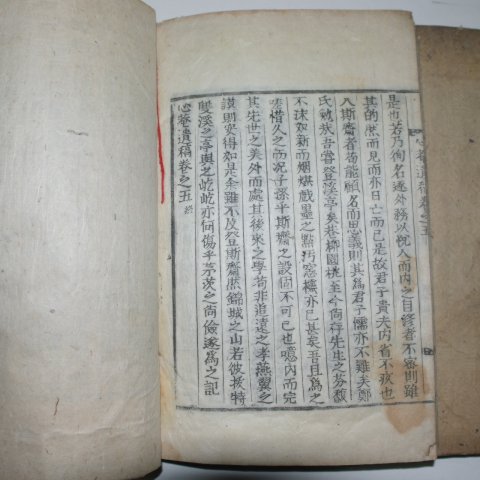 是也若乃徇名逐外務以悅人而內之自修者不密則雖
其的然而見而亦日亡而已是故君子貴夫內省不疚也
入斯齋者苟能顧名而思義則其為君子儒亦不難矣鄭
氏勉哉吾嘗登溪亭矣巷柳園桃至今尚存先生之芬馥
不沫如新而烟煤戲墨之點汚窓櫺亦已甚矣吾且為之
嗟惜久之而況子孫乎斯齋之設固不可已也噫內而完
其先世之美外而處其後來之學苟非追遠之孝燕翼之
謨則奚得如是余雖不及登斯齋然錦城之山若彼拔特
雙溪之亭與之屹屹亦何傷乎茅茨之尙儉遂為之記
心菴遺稿卷之五 終
心菴遺稿卷之五